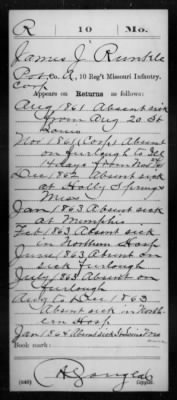 R 10 Mo.
James J Runkle
Pvt, Co. A, 10 Reg't Missouri Infantry.
Corp
Appears on Returns as follows:
Aug 1861 Absent sick
from Aug 20 St
Louis
Nov 1861 (Corp) Absent
on furlough to
Dec 1862 Absent sick
at Holly Springs
Miss
Jan 1863 Absent sick
at Memphis
Feb 1863 Absent sick
in Northern Hosp
June 1863 Absent on
sick furlough
July 1863 Absent on
furlough
Aug to Dec 1863
Absent sick in North
ern Hosp
Jan 1864 Absent sick St Louis Mo
Book mark:
(646) Copyist.